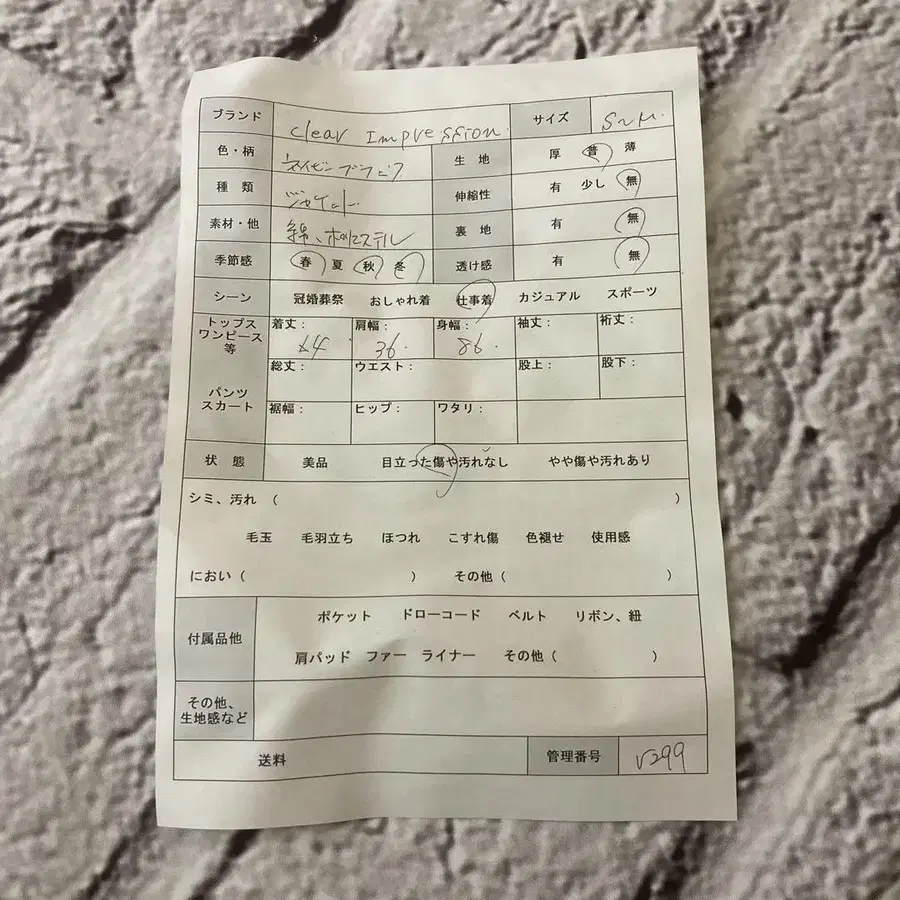 ブランド clear Impression. サイズ S~M.
色・柄 ネイビーブラック 生地 厚 普 薄
種類 ジャケット 伸縮性 有 少し 無
素材・他 綿、ポリエステル 裏地 有 無
季節感 春 夏 秋 冬 透け感 有 無
シーン 冠婚葬祭 おしゃれ着 仕事着 カジュアル スポーツ
トップス ワンピース 等 着丈: 肩幅: 36. 身幅: 86. 袖丈: 裄丈:
パンツ スカート 総丈: ウエスト: 股上: 股下:
裾幅: ヒップ: ワタリ:
状態 美品 目立った傷や汚れなし やや傷や汚れあり
シミ、汚れ ( )
毛玉 毛羽立ち ほつれ こすれ傷 色褪せ 使用感
におい ( ) その他 ( )
付属品他 ポケット ドローコード ベルト リボン、紐
肩パッド ファー ライナー その他 ( )
その他、
生地感など
送料 管理番号 V299